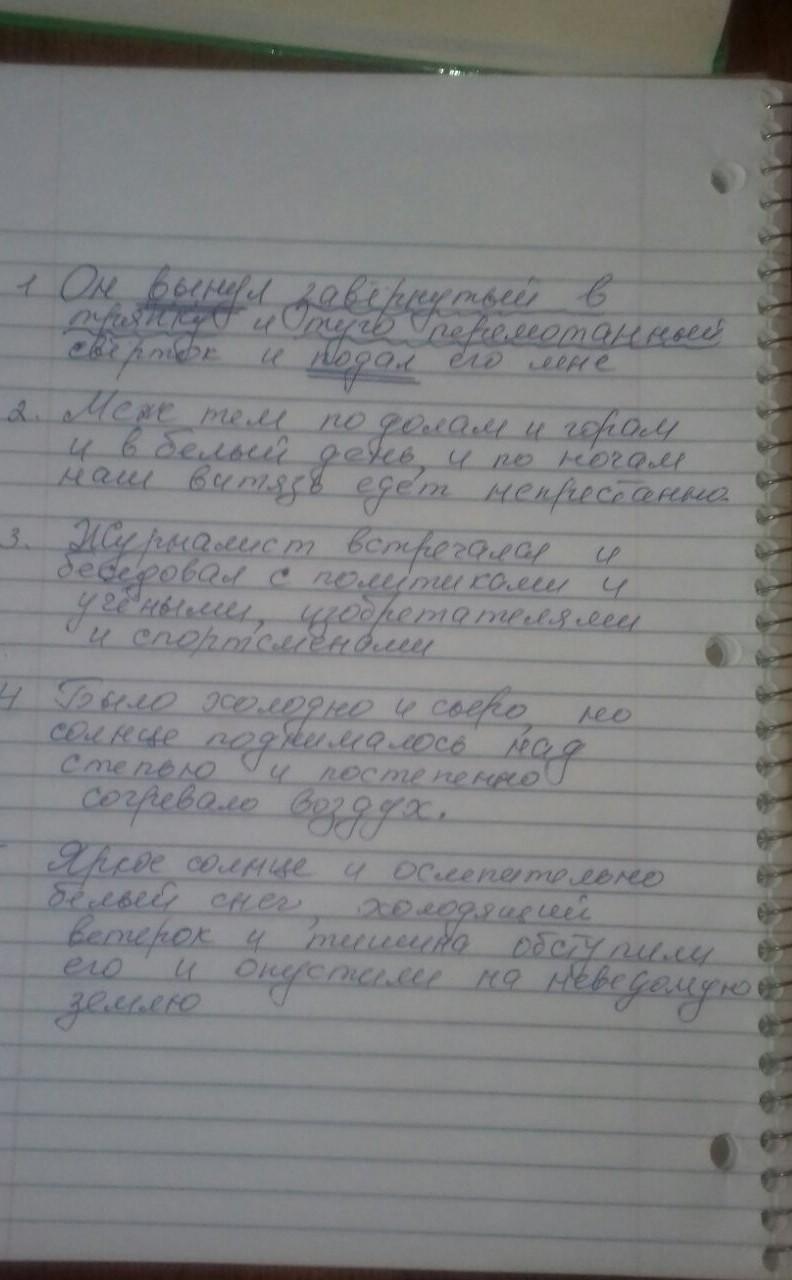 1 Он вынул завёрнутый в
тряпку и туго перемотанный
свёрток и подал его мне
2. Меж тем по долам и горам
и в белый день, и по ночам
наш витязь едет непрестанно.
3. Журналист встречался и
беседовал с политиками и
учёными, изобретателями
и спортсменами
4 Было холодно и сыро, но
солнце поднималось над
степью и постепенно
согревало воздух.
Яркое солнце и ослепительно
белый снег, холодящий
ветерок и тишина обступили
его и опустили на неведомую
землю